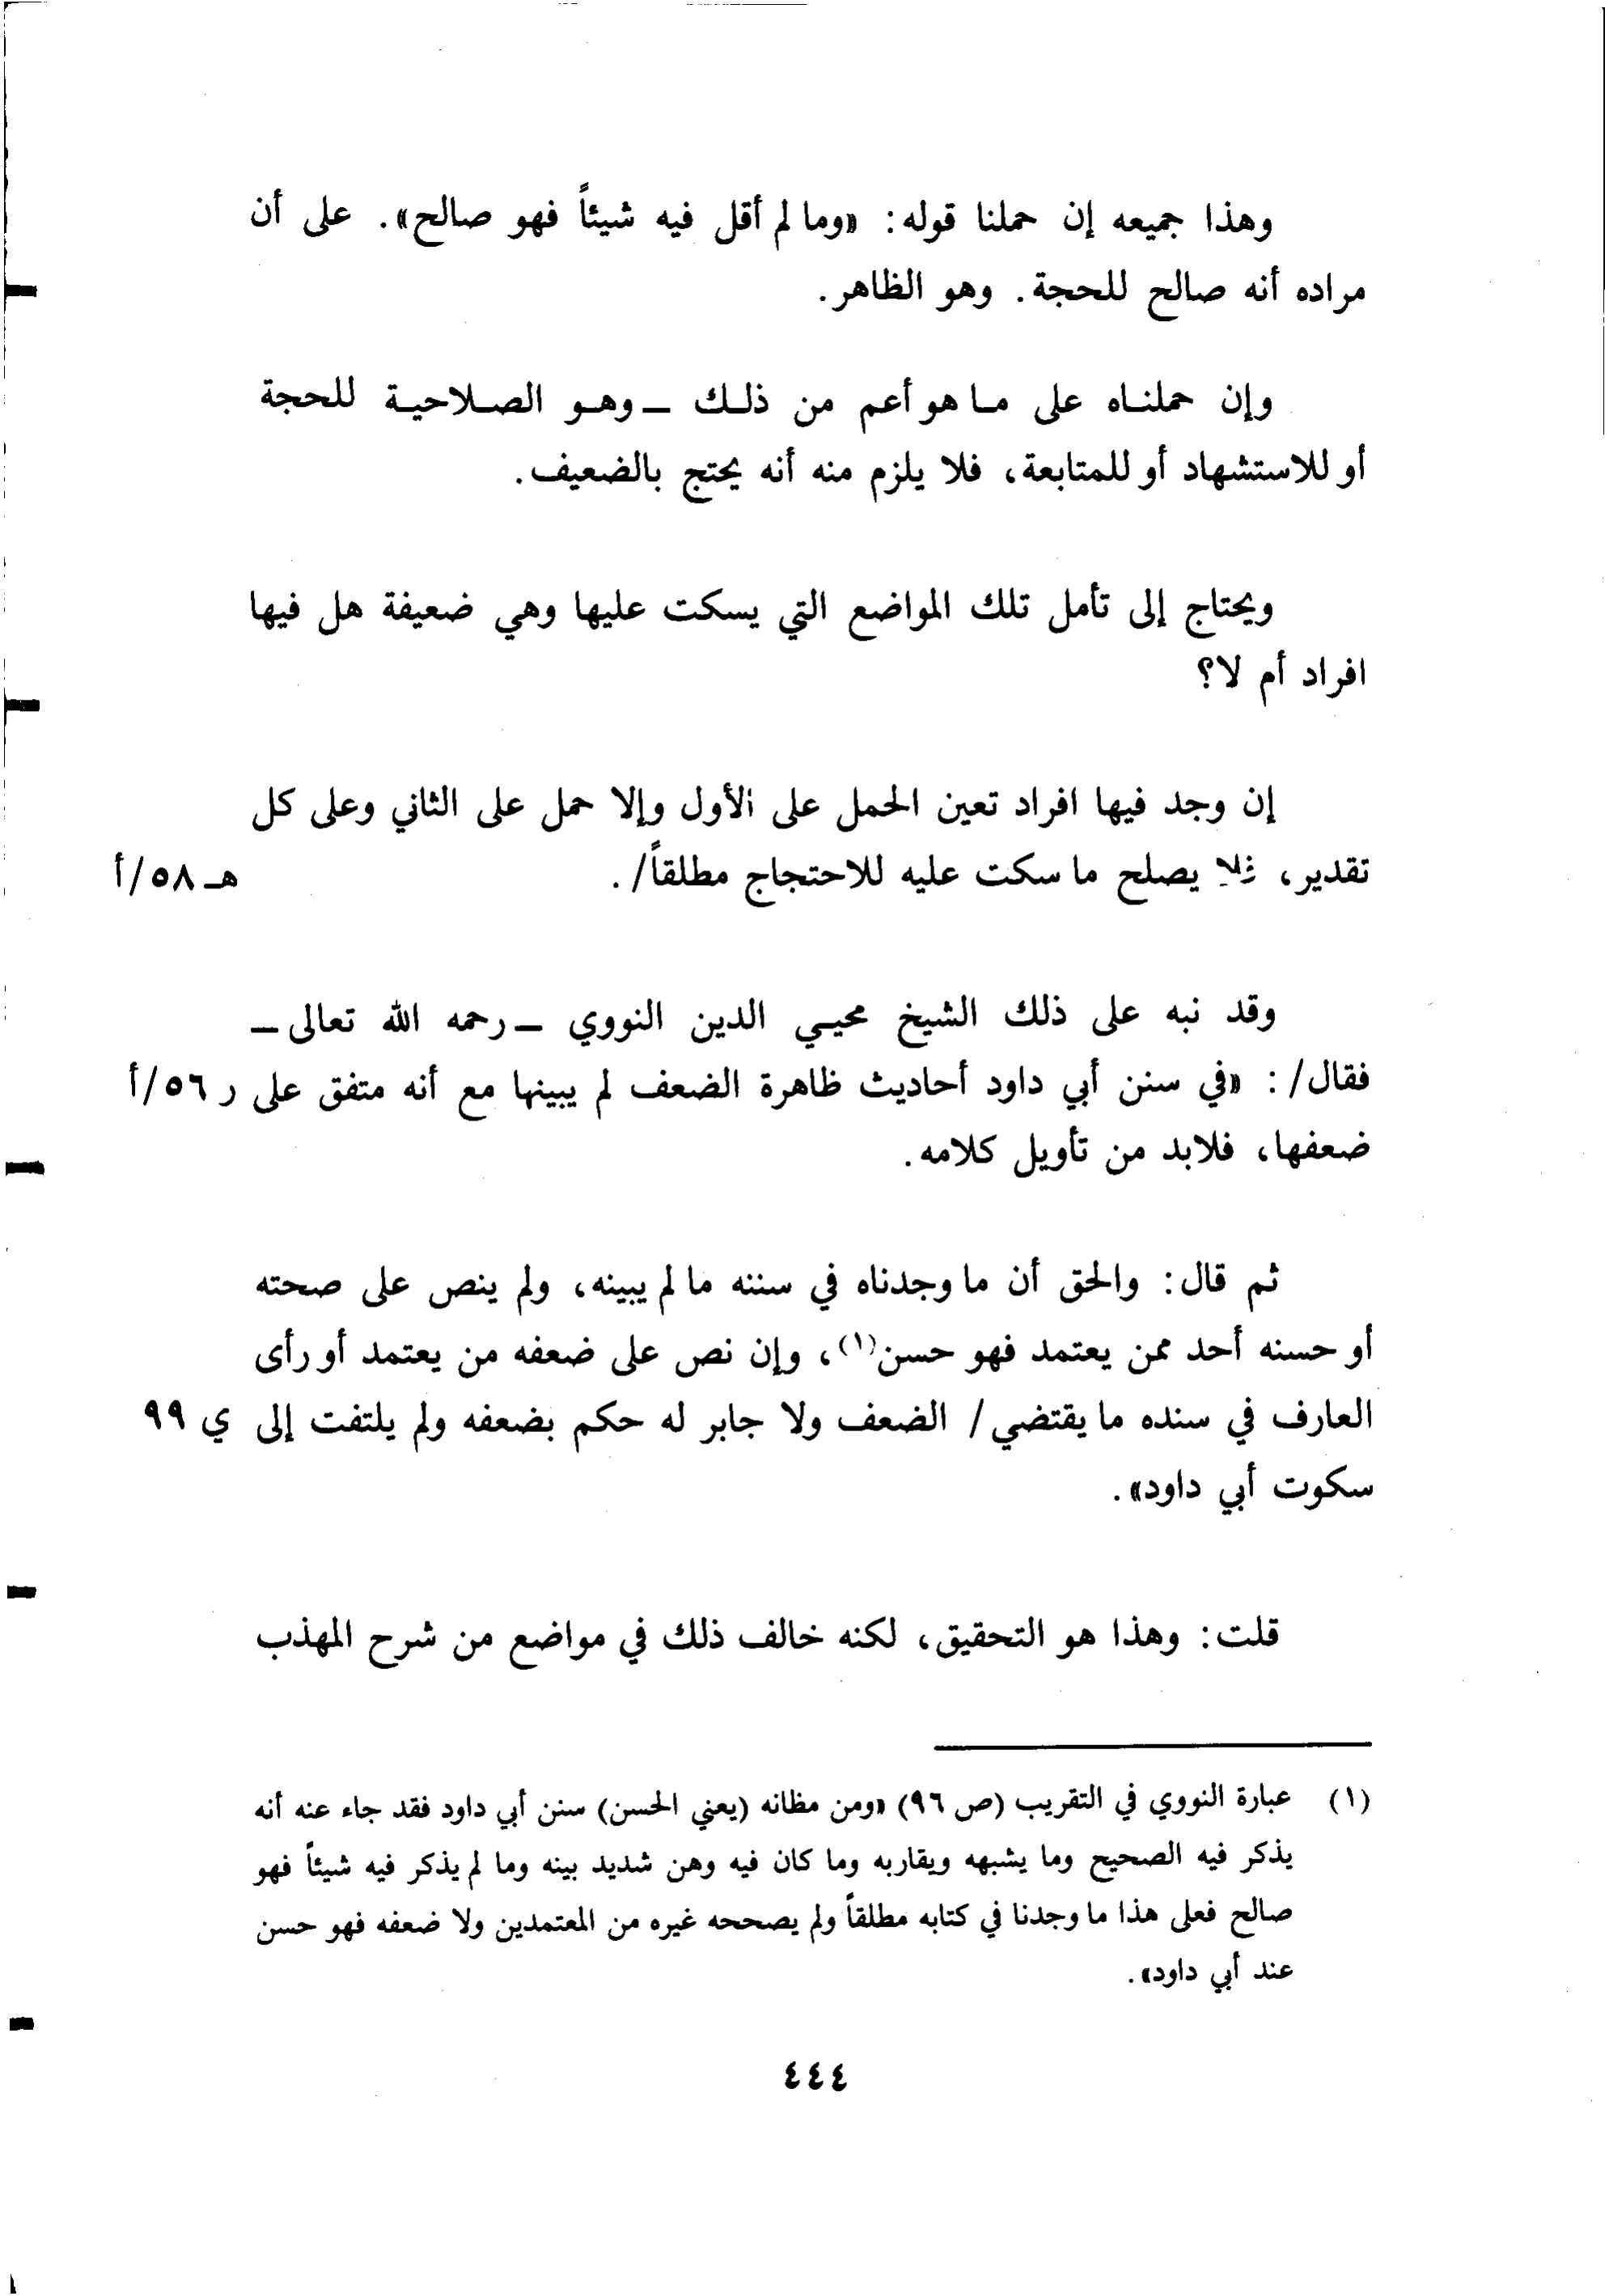 وهذا جميعه إن حملنا قوله: «وما لم أقل فيه شيئاً فهو صالح». على أن
مراده أنه صالح للحجة. وهو الظاهر.
وإن حملناه على ما هو أعم من ذلك – وهو الصلاحية للحجة
أو للاستشهاد أو للمتابعة، فلا يلزم منه أنه يحتج بالضعيف.
ويحتاج إلى تأمل تلك المواضع التي يسكت عليها وهي ضعيفة هل فيها
افراد أم لا؟
إن وجد فيها افراد تعين الحمل على الأول وإلا حمل على الثاني وعلى كل
تقدير، فلا يصلح ما سكت عليه للاحتجاج مطلقاً/. هـ ـ ٥٨/أ
وقد نبه على ذلك الشيخ محيي الدين النووي – رحمه الله تعالى –
فقال/: «في سنن أبي داود أحاديث ظاهرة الضعف لم يبينها مع أنه متفق على ر ٥٦/أ
ضعفها، فلابد من تأويل كلامه.
ثم قال: والحق أن ما وجدناه في سننه ما لم يبينه، ولم ينص على صحته
أو حسنه أحد ممن يعتمد فهو حسن(١)، وإن نص على ضعفه من يعتمد أو رأى
العارف في سنده ما يقتضي/ الضعف ولا جابر له حكم بضعفه ولم يلتفت إلى ي ٩٩
سكوت أبي داود».
قلت: وهذا هو التحقيق، لكنه خالف ذلك في مواضع من شرح المهذب
(١) عبارة النووي في التقريب (ص ٩٦) «ومن مظانه (يعني الحسن) سنن أبي داود فقد جاء عنه أنه
يذكر فيه الصحيح وما يشبهه ويقاربه وما كان فيه وهن شديد بينه وما لم يذكر فيه شيئاً فهو
صالح فعلى هذا ما وجدنا في كتابه مطلقاً ولم يصححه غيره من المعتمدين ولا ضعفه فهو حسن
عند أبي داود».
٤٤٤